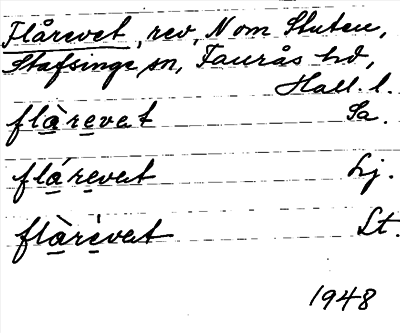 Flårevet, rev, N om Stuten,
Stafsinge sn, Faurås hd,
Hall. l.
flàrevet Sa.
flárevet Lj.
flàrèvet Lt.
1948